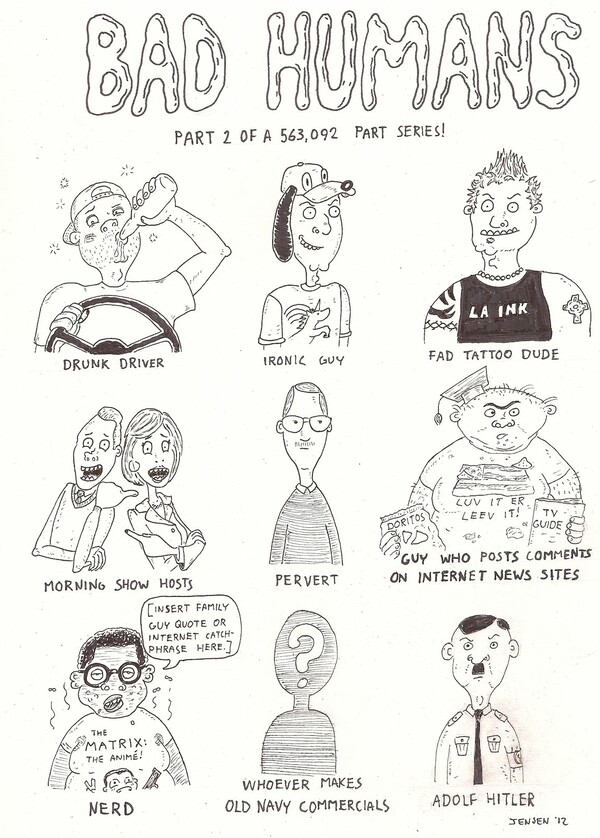 BAD HUMANS
PART 2 OF A 563,092 PART SERIES!
DRUNK DRIVER
IRONIC GUY
LA INK
FAD TATTOO DUDE
MORNING SHOW HOSTS
PERVERT
LUV IT ER
LEEV IT!
DORITOS
TV
GUIDE
GUY WHO POSTS COMMENTS
ON INTERNET NEWS SITES
[INSERT FAMILY
GUY QUOTE OR
INTERNET CATCH-
PHRASE HERE.]
THE
MATRIX:
THE ANIMÉ!
NERD
?
WHOEVER MAKES
OLD NAVY COMMERCIALS
ADOLF HITLER
JENSEN '12